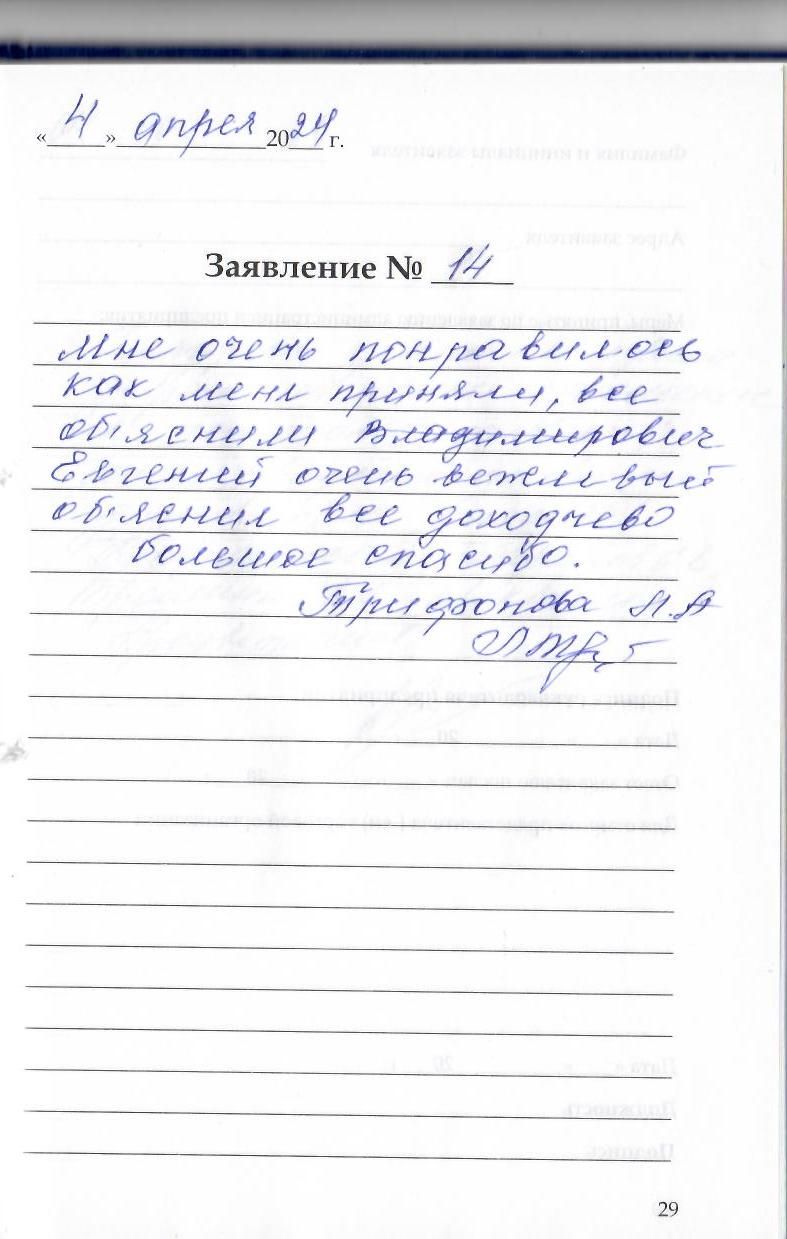 «4» апреля 2024 г.
Заявление № 14
Мне очень понравилось
как меня приняли, все
объяснили Владимирович
Евгений очень вежливый
объяснил все доходчево
большое спасибо.
Трифонова Л.А
29